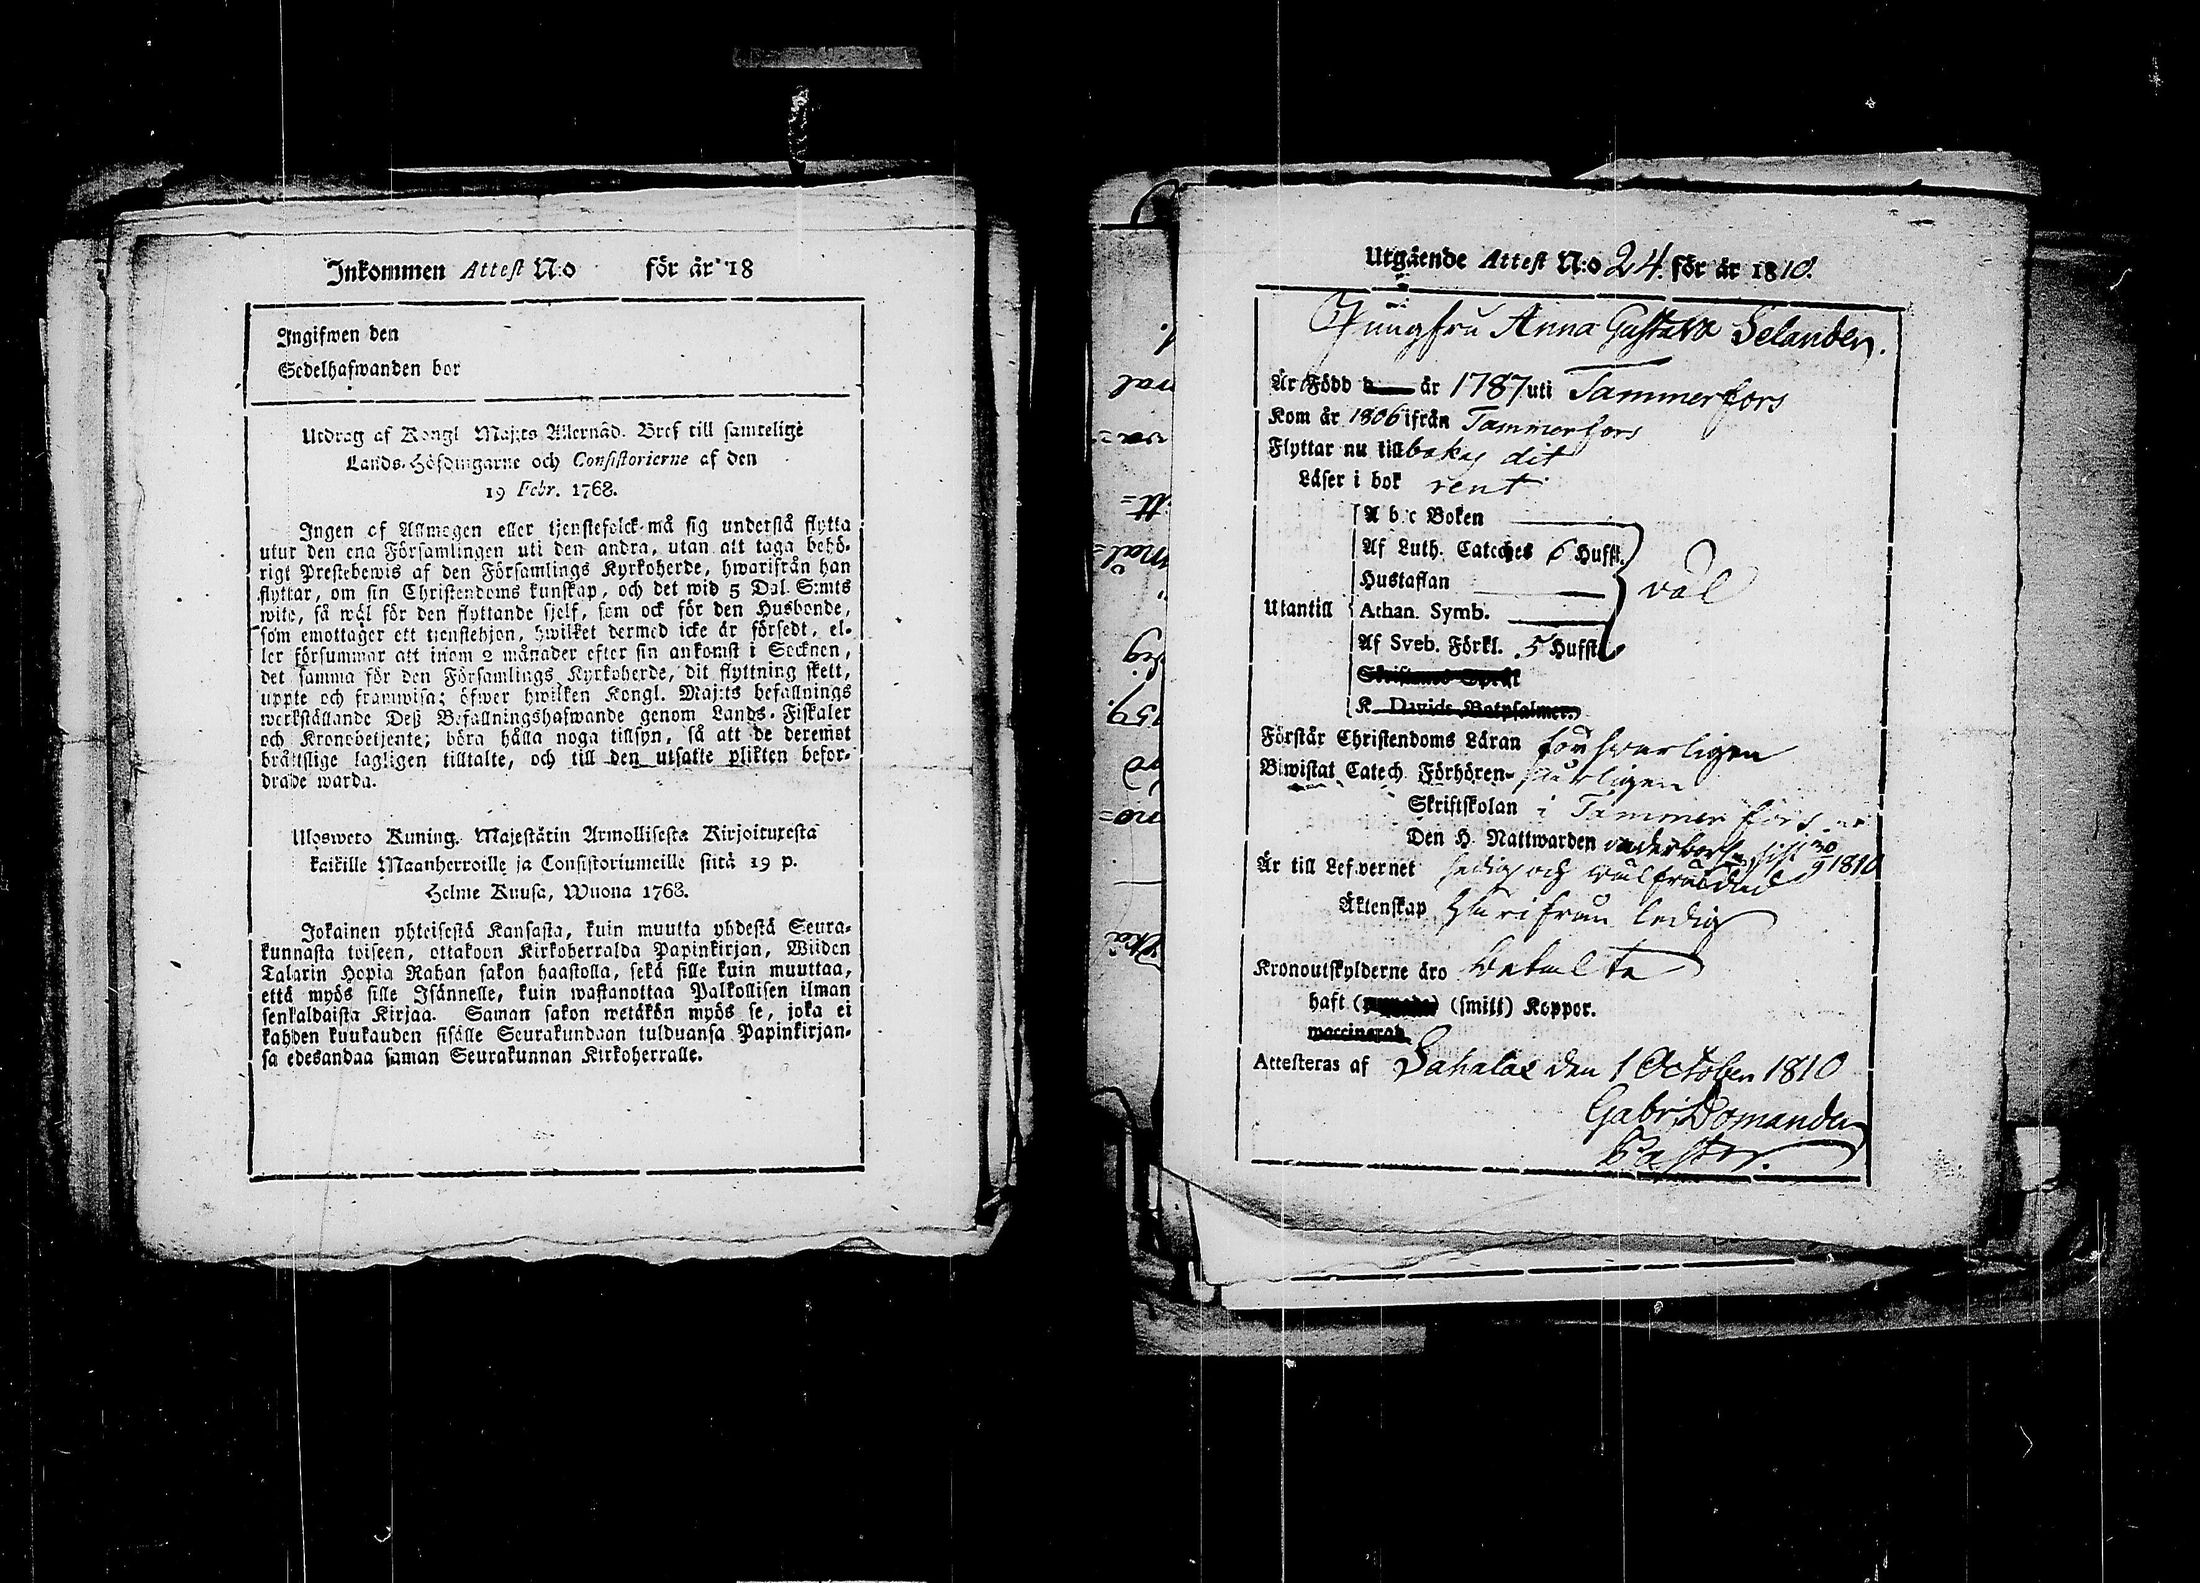 Inkommen Attest N:o för år 18
Ingifwen den
Sedelhafwanden bor
Utdrag af Kongl Maj:ts Allernåd. Bref till samtelige
Lands-Höfdingarne och Consistorierne af den
19 Febr. 1768.
Ingen af Allmogen eller tjenstefolck må sig understå flytta
utur den ena Församlingen uti den andra, utan att taga behö-
rigt Prestebewis af den Församlings Kyrkoherde, hwarifrån han
flyttar, om sin Christendoms kunskap, och det wid 5 Dal. S:mts
wite, så wäl för den flyttande sjelf, som ock för den Husbonde,
som emottager ett tjenstehjon, hwilket dermed icke är försedt, el-
ler försummar att inom 2 månader efter sin ankomst i Socknen,
det samma för den Församlings Kyrkoherde, dit flyttning skett,
uppte och framwisa; öfwer hwilken Kongl. Maj:ts befallnings
werkställande Deß Befallningshafwande genom Lands-Fiskaler
och Kronobetjente; böra hålla noga tillsyn, så att de deremot
bråttslige lagligen tilltalte, och till den utsatte plikten befor-
drade warda.
Ulosweto Kuning. Majestätin Armollisesta Kirjoituxesta
kaikille Maanherroille ja Consistoriumeille siitä 19 p.
Helme Kuusa, Wuona 1768.
Jokainen yhteisestä Kansasta, kuin muutta yhdestä Seura-
kunnasta toiseen, ottakoon Kirkoherralda Papinkirjan, Wiiden
Talarin Hopia Rahan sakon haastolla, sekä sille kuin muuttaa,
että myös sille Isännelle, kuin wastanottaa Palkollisen ilman
senkaldaista Kirjaa. Saman sakon wetäkön myös se, joka ei
kahden kuukauden sisälle Seurakundaan tulduansa Papinkirjan-
sa edesandaa saman Seurakunnan Kirkoherralle.
Utgående Attest N:o 24. för år 1810.
Jungfru Anna Gustava Selander.
Är Född år 1787 uti Tammerfors
Kom år 1806 ifrån Tammerfors
Flyttar nu tillbakas dit
Läser i bok rent
A b c Boken
Af Luth. Cateches 6 Hufst.
Hustaflan
väl
Utantill
Athan. Symb.
Af Sveb. Förkl. 5 Hufst.
K. Davids Botpsalmer.
Förstår Christendoms Läran försvarligen
Biwistat Catech. Förhören
Skriftskolan i Tammerfors
Den H. Nattwarden sist 30/9 1810
Är till Lefwernet sedig och välfräjdad
Äktenskap härifrån ledig
Kronoutskylderne äro betalte
haft (smitt) Koppor.
waccinerad
Attesteras af Sahalax den 1 October 1810
Gabr. Domander
Pastor.